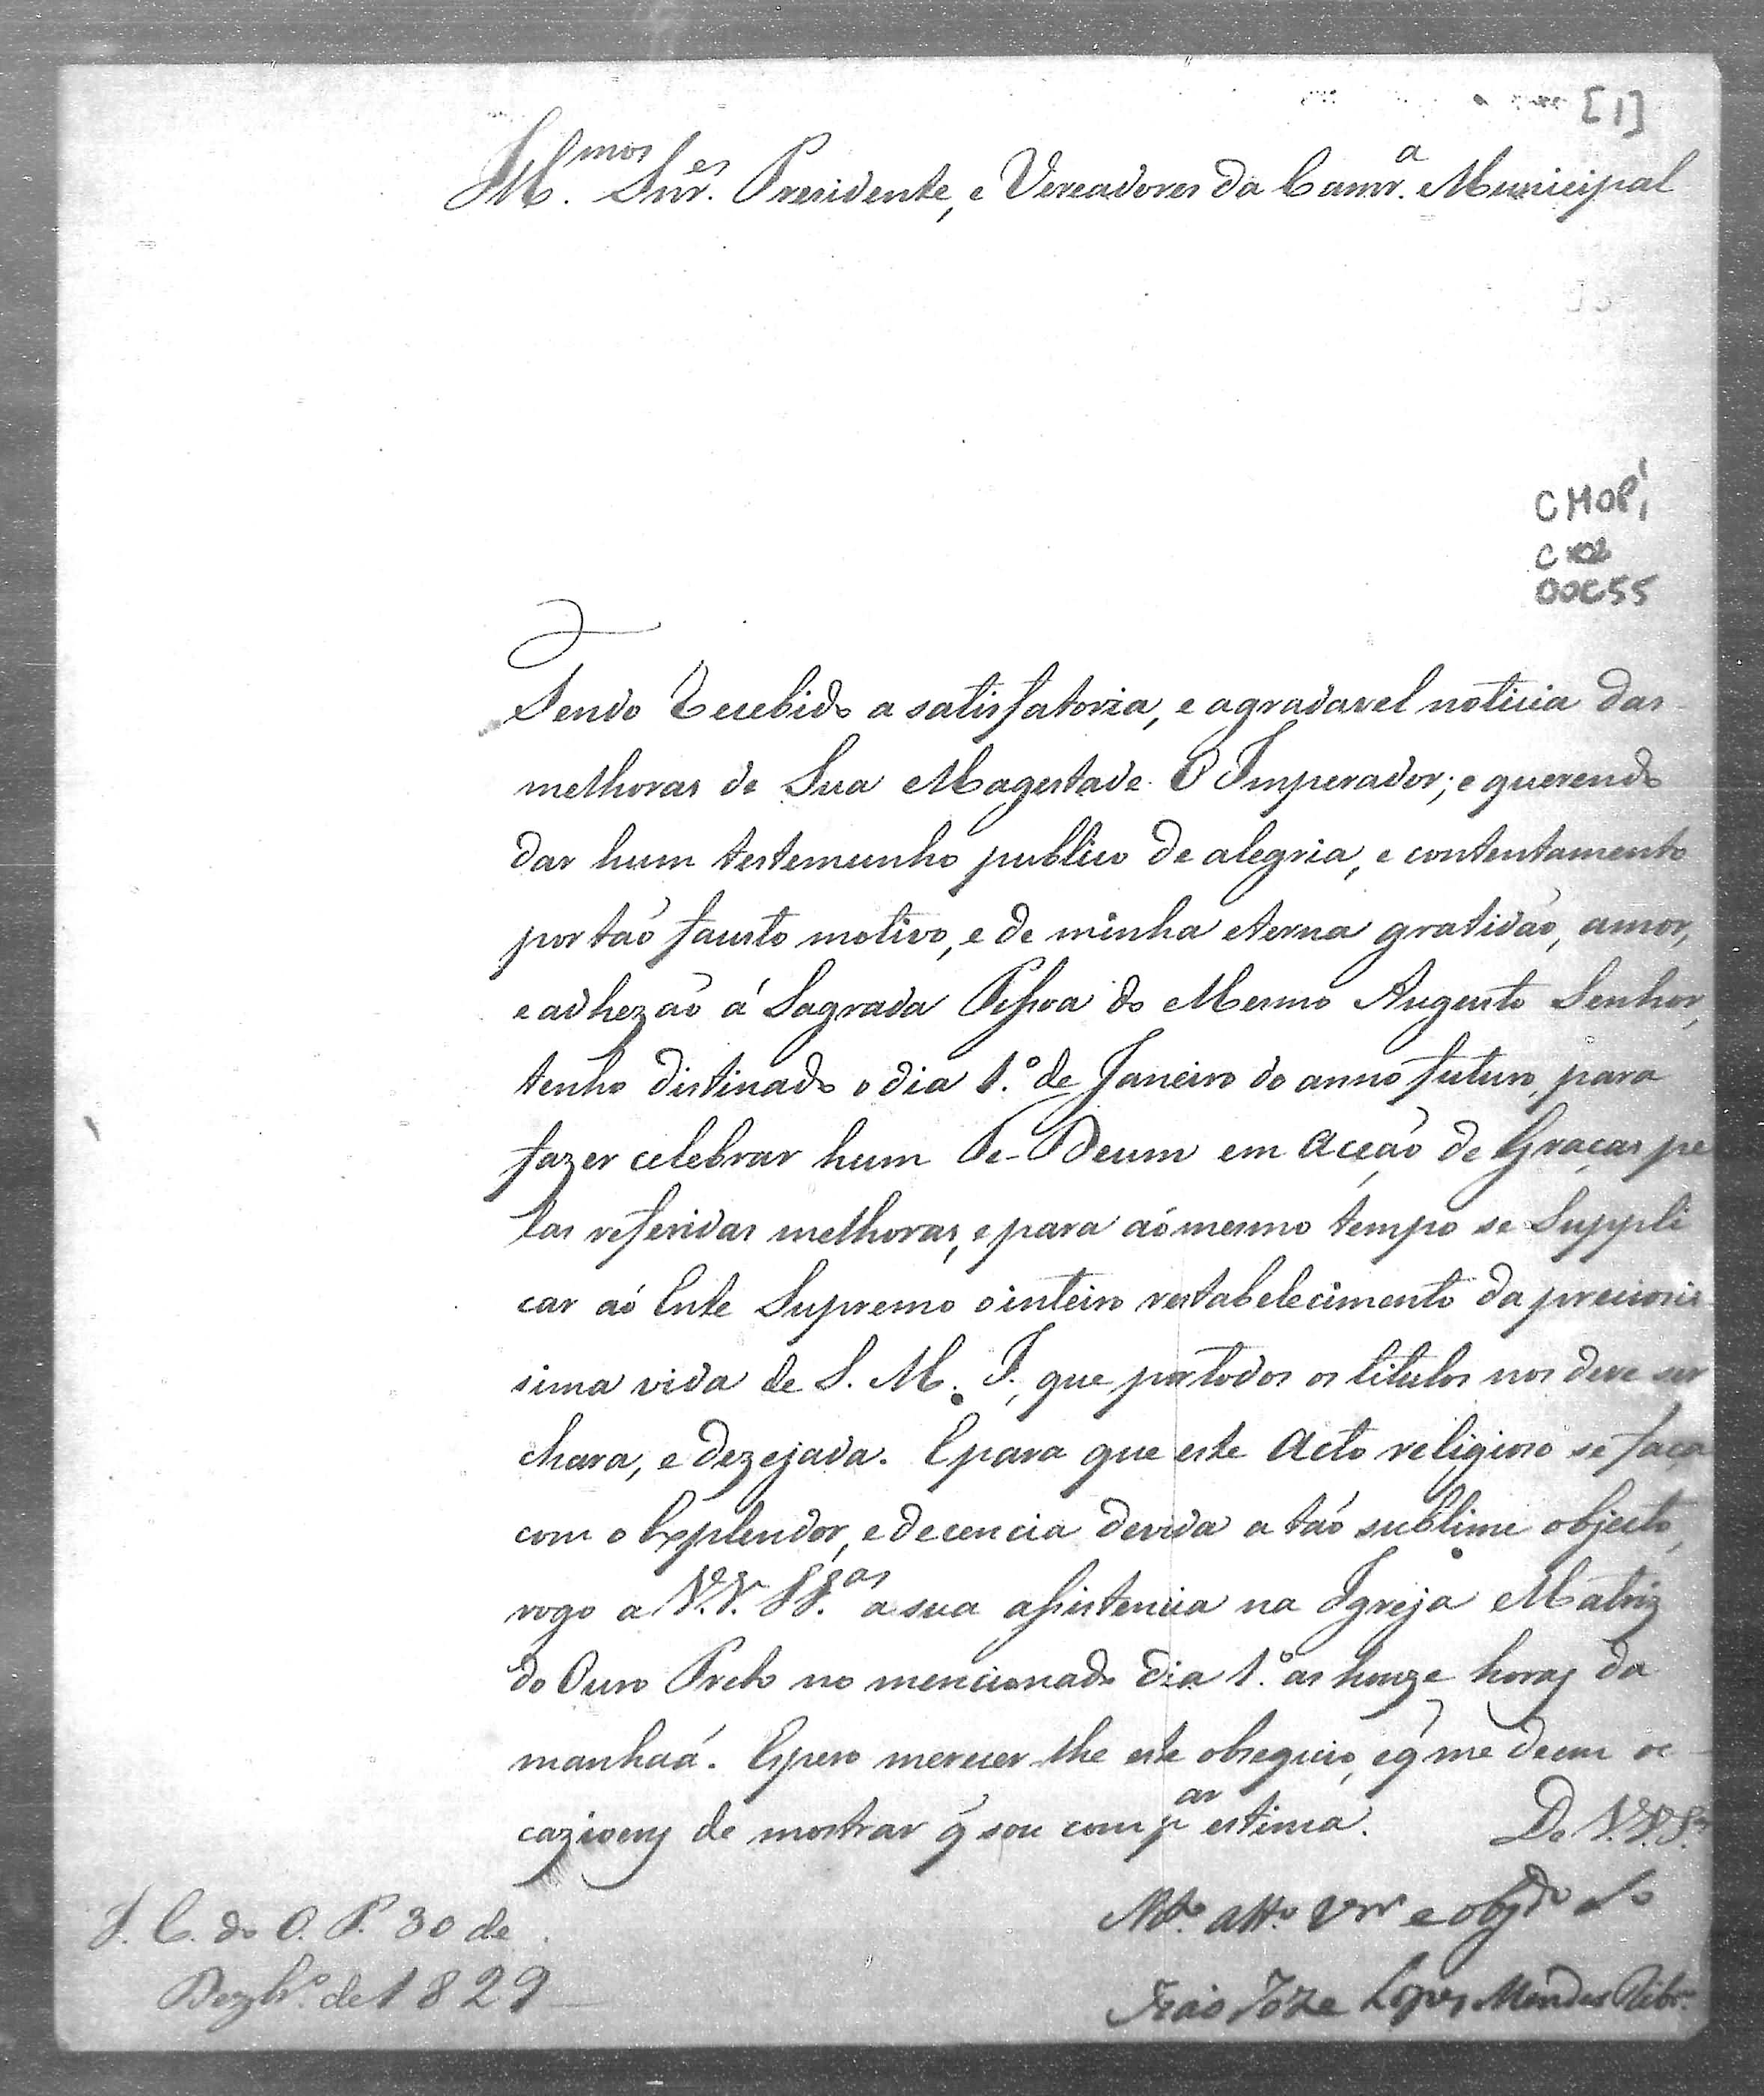 [1]
Ill.mos Snr.es Presidente, e Vereadores da Camr.a Municipal
CMOP
CX02
DOC55
Tendo Recebido a satisfatoria, e agradavel noticia das
melhoras de Sua Magestade O Imperador; e querendo
dar hum testemunho publico de alegria, e contentamento
por taõ fausto motivo, e de minha eterna gratidaõ, amor,
e adhezaõ á Sagrada Pessoa do Mesmo Augusto Senhor,
tenho distinado o dia 1.º de Janeiro do anno futuro, para
fazer celebrar hum Te-Deum em Acçaõ de Graças pe
las referidas melhoras, e para aõ mesmo tempo se Suppli
car aõ Ente Supremo o inteiro restabelecimento da preciosis
sima vida de S. M. I., que por todos os titulos nos deve ser
chara, e dezejada. E para que este Acto religioso se faça
com o Explendor, e decencia devida a taõ sublime objecto,
rogo a V.V. SS.as a sua assistencia na Igreja Matriz
do Ouro Preto no mencionado dia 1.º as honze horas da
manhaã. Espero merecer-lhe este obsequio, e q̃ me deem oc
cazioens de mostrar q̃ sou com p.ar estima. De V.V.S.as
M.to att.o Vnr e obg.do
I. C. do O. P. 30 de
Dezbr.o de 1829
Joaõ Joze Lopes Mendes Ribr.o